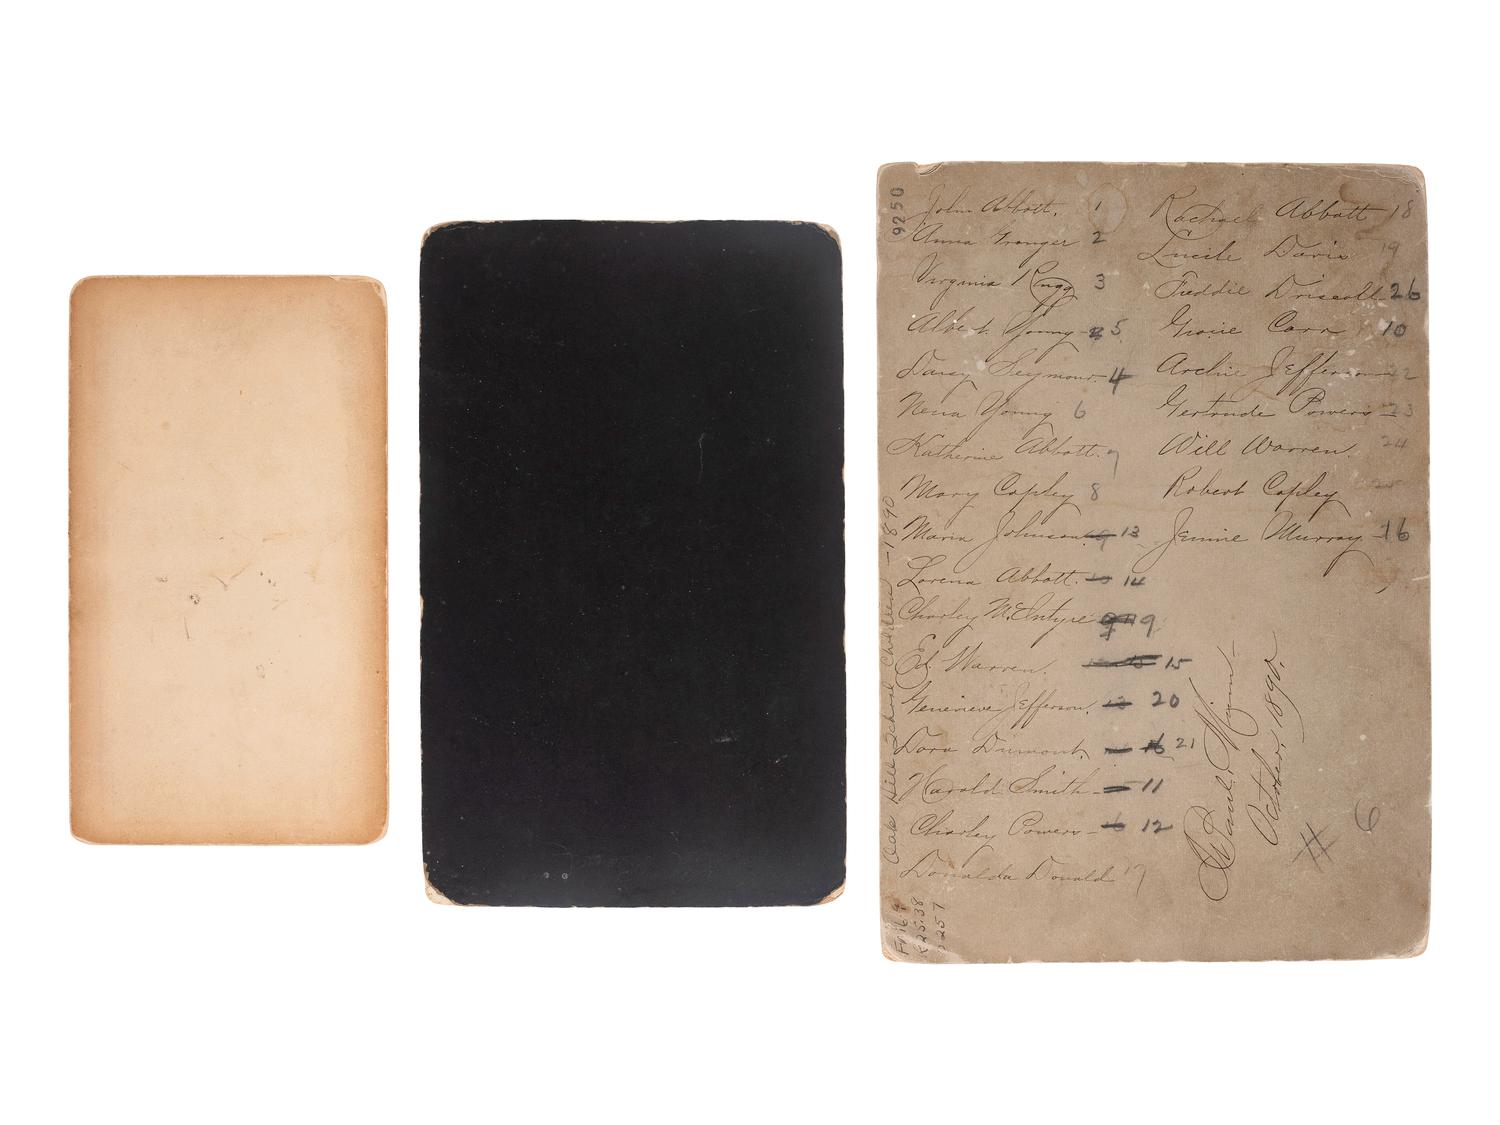 9250
John Abbott. 1
Anna Granger 2
Virginia Rugg 3
Albert Young 5
Darcy Seymour - 4
Nena Young 6
Katherine Abbott. 7
Mary Copley 8
Maria Johnson 9 13
Lorena Abbott. 10 14
Charley McEntyre 9
Ed. Warren. 15
Genevieve Jefferson. 20
Dora Dumont 16 21
Harold Smith - 11
Charley Powers - 12
Donalda Donald 17
Rachael Abbott 18
Lucile Davis 19
Freddie Driscoll 26
Grace Carr 10
Archie Jefferson 22
Gertrude Powers - 23
Will Warren. 24
Robert Copley 25
Jennie Murray - 16
Oak Hill School Children - 1890
St Paul, Minn -
October, 1890.
# 6
25.38
257